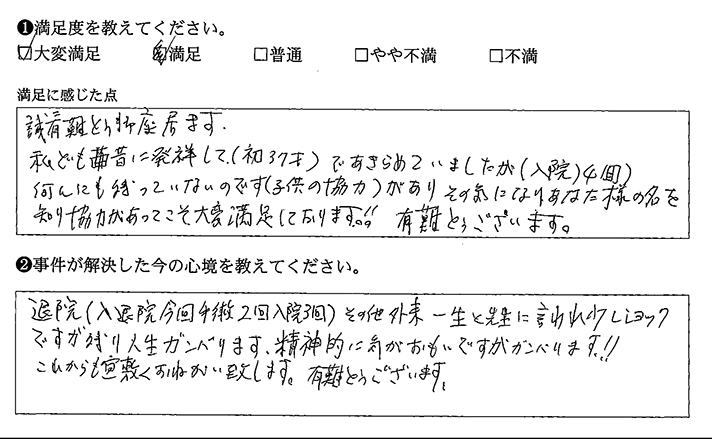 ❶満足度を教えてください。
☑大変満足 □満足 □普通 □やや不満 □不満
満足に感じた点
誠有難とう御座居ます.
私ども昔に発祥して(初37才)であきらめていましたが(入院)4回)
何んにも待っていないのです(子供の協力)がありその気になりあなた様の名を
知り協力があってこそ大変満足して有ります!! 有難とうございます。
❷事件が解決した今の心境を教えてください。
退院(入退院今回手術2回入院3回)その他外来一生と先生に言われ少しショック
ですが残り人生ガンバります、精神的に気がおもいですがガンバります!!
これからも宜敷くおねがい致します。有難とうございます.